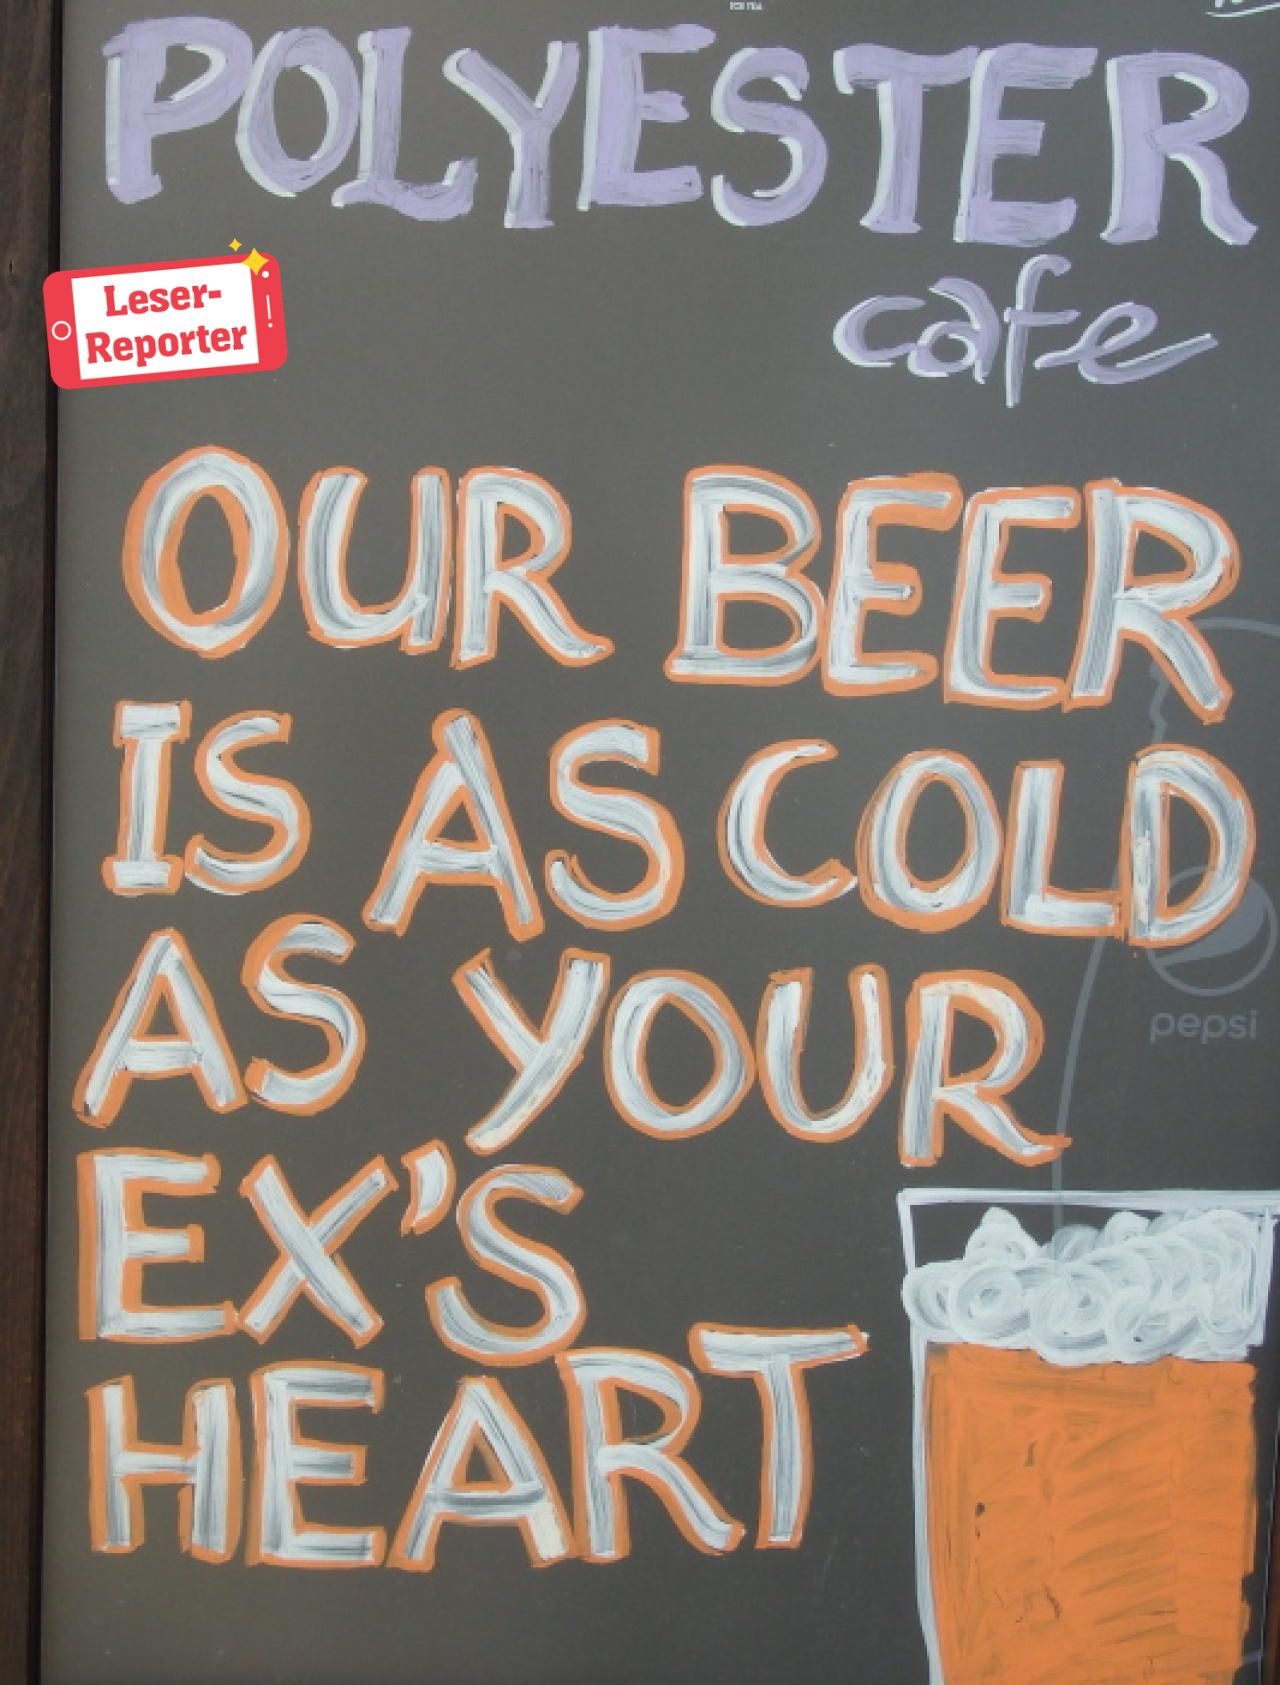 POLYESTER
cafe
Leser-
Reporter
OUR BEER
IS AS COLD
AS YOUR
EX'S
HEART
pepsi